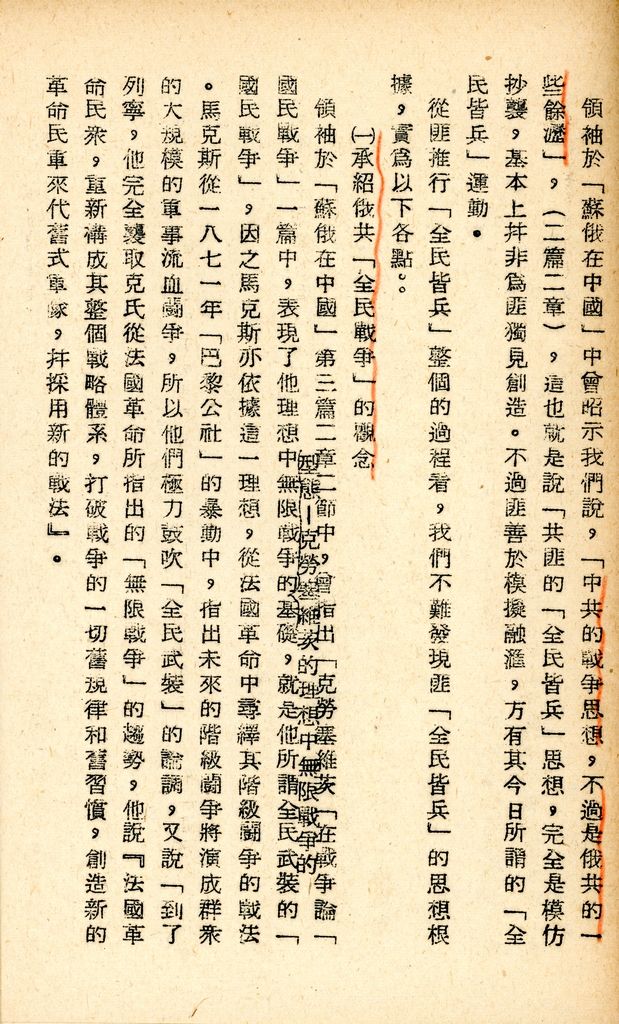 領袖於「蘇俄在中國」中曾昭示我們說，「中共的戰爭思想，不過是俄共的一
些餘瀝」，（二篇二章），這也就是說「共匪的「全民皆兵」思想，完全是模仿
抄襲，基本上幷非爲匪獨見創造。不過匪善於模擬融滙，方有其今日所謂的「全
民皆兵」運動。
從匪推行「全民皆兵」整個的過程看，我們不難發現匪「全民皆兵」的思想根
據，實爲以下各點。。
㈠承紹俄共「全民戰爭」的觀念
領袖於「蘇俄在中國」第三篇二章二節中，曾指出「克勞塞維茨「在戰爭論「
型態—克勞塞維茨的理想中無限戰爭的
國民戰爭」一篇中，表現了他理想中無限戰爭的基礎，就是他所謂全民武裝的「
國民戰爭」，因之馬克斯亦依據這一理想，從法國革命中尋繹其階級鬪爭的戰法
。馬克斯從一八七一年「巴黎公社」的暴動中，指出未來的階級鬪爭將演成群衆
的大規模的軍事流血鬪爭，所以他們極力鼓吹「全民武裝」的論調，又說「到了
列寧，他完全襲取克氏從法國革命所指出的「無限戰爭」的趨勢，他說『法國革
命民衆，重新構成其整個戰略體系，打破戰爭的一切舊規律和舊習慣，創造新的
革命民軍來代舊式軍隊，幷採用新的戰法』。